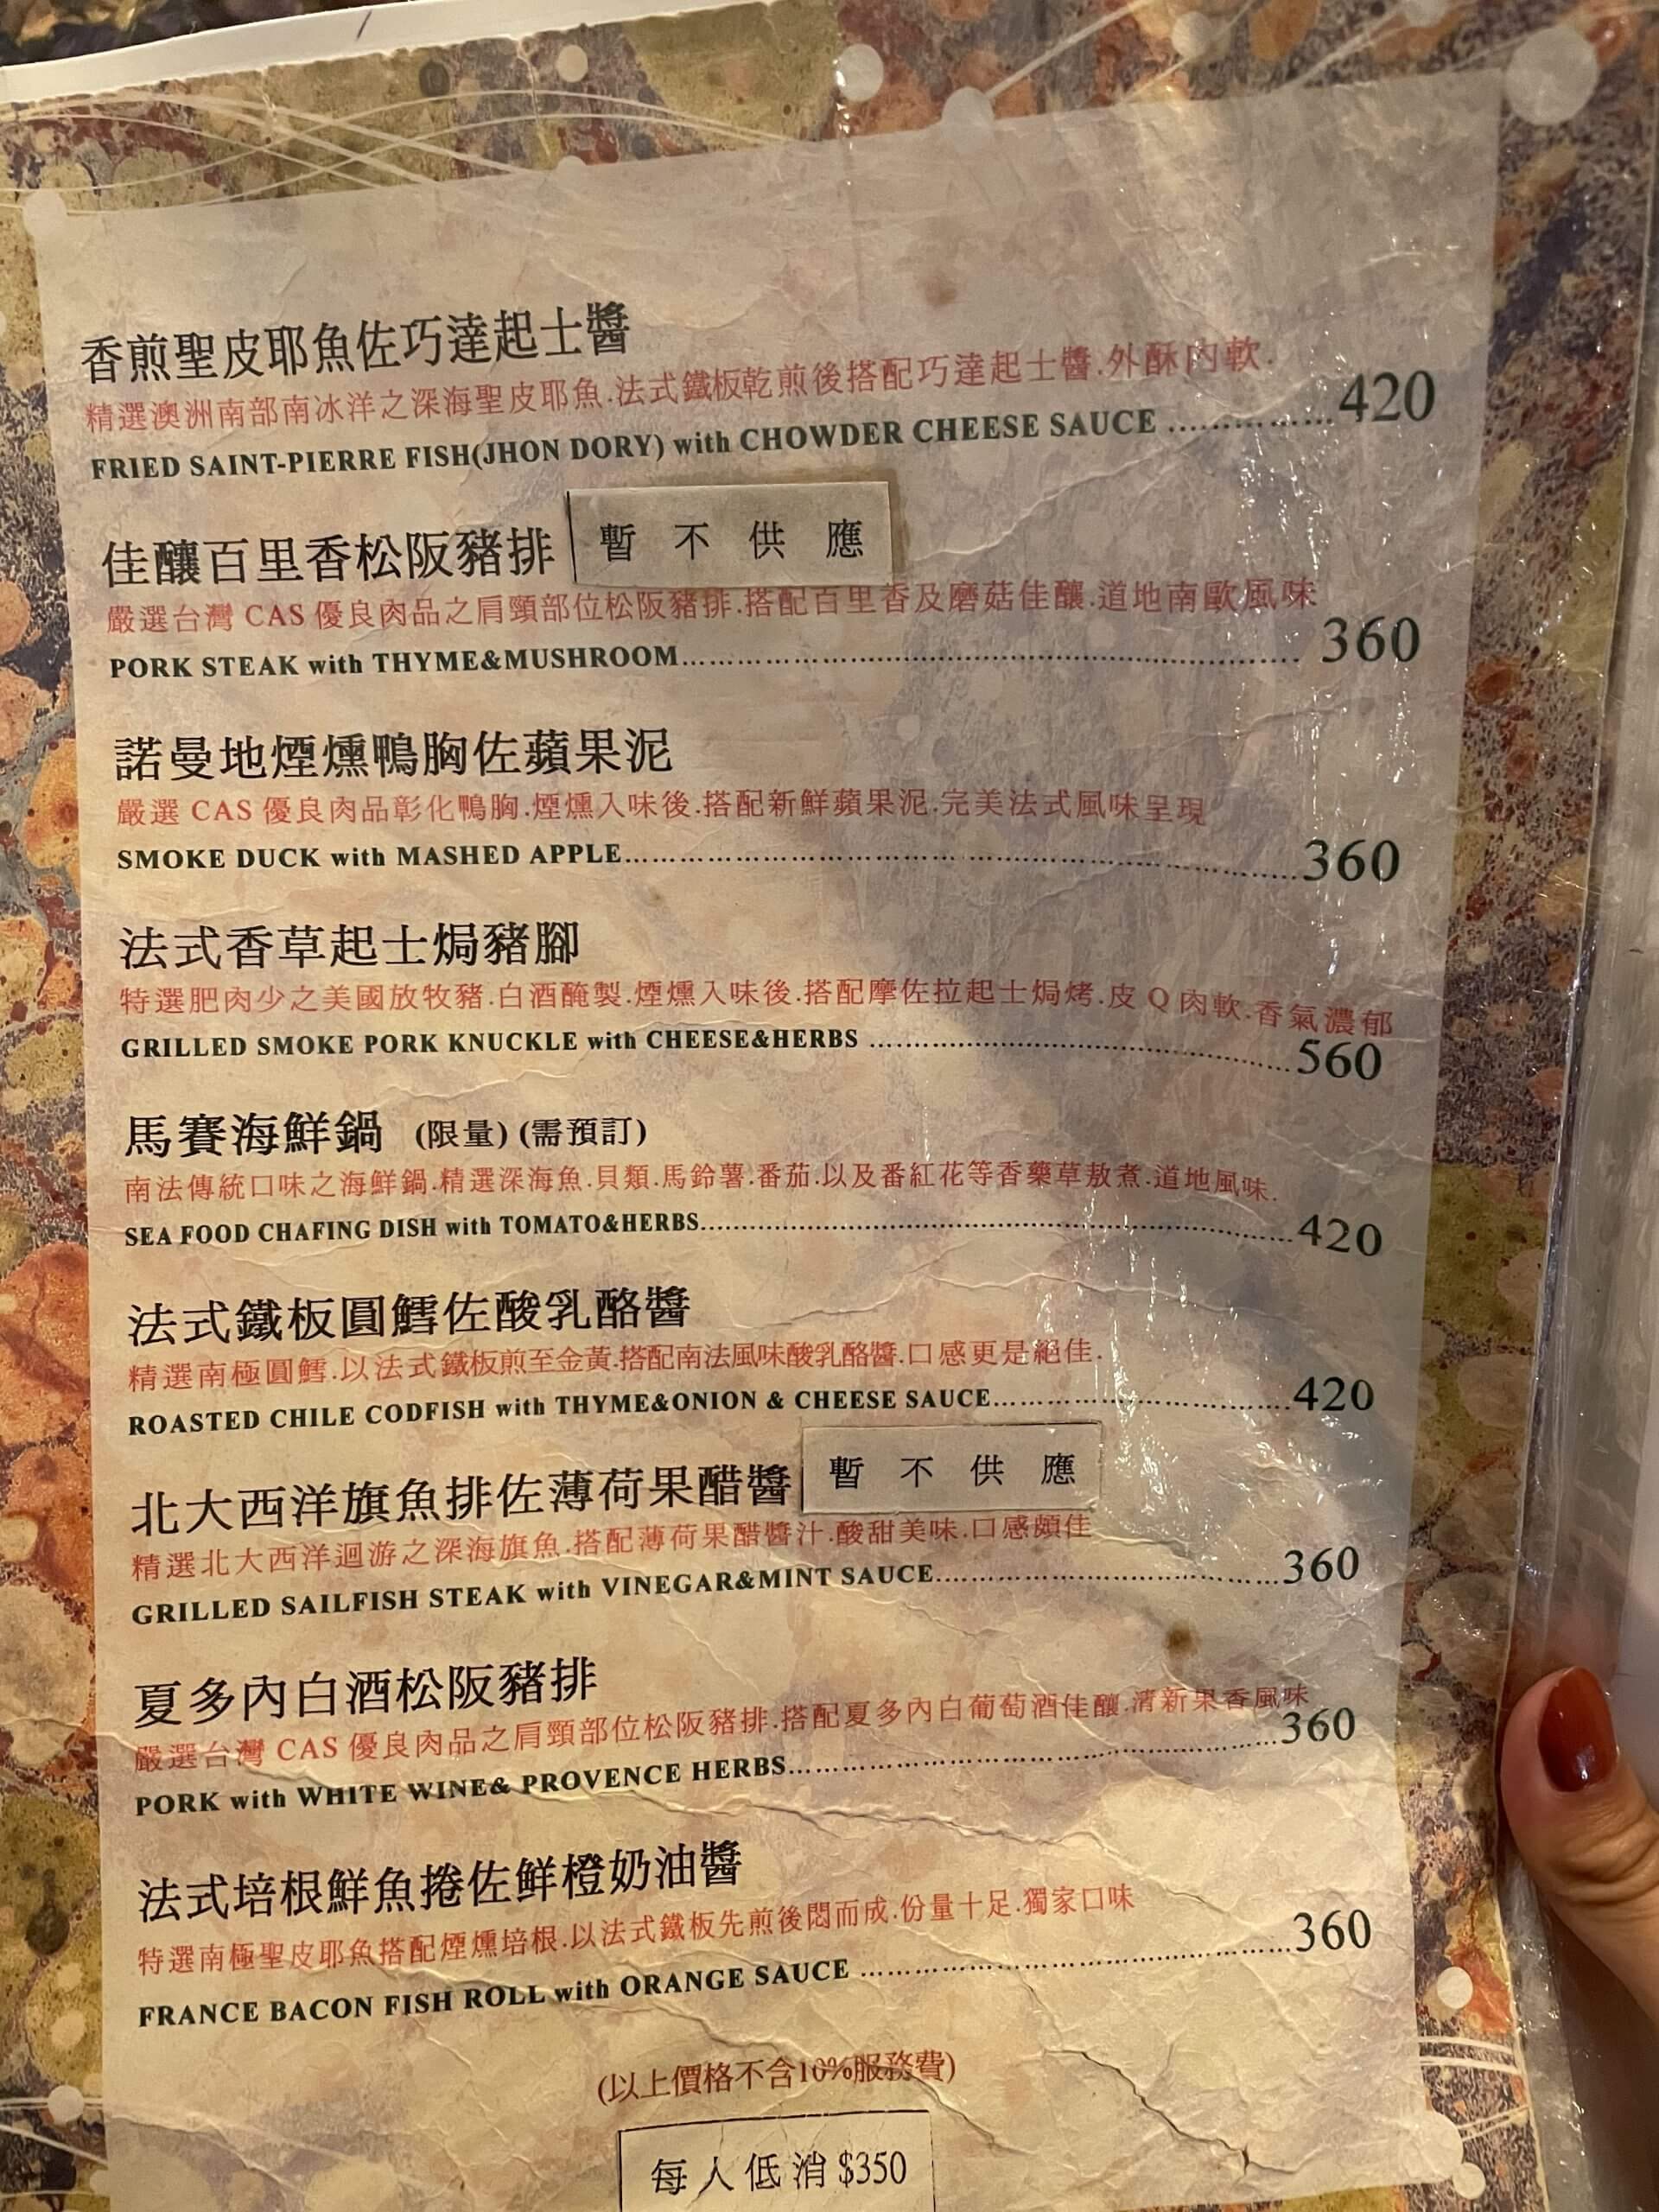 香煎聖皮耶魚佐巧達起士醬
精選澳洲南部南冰洋之深海聖皮耶魚.法式鐵板乾煎後搭配巧達起士醬.外酥肉軟.
FRIED SAINT-PIERRE FISH(JHON DORY) with CHOWDER CHEESE SAUCE ................420
佳釀百里香松阪豬排 暫不供應
嚴選台灣 CAS 優良肉品之肩頸部位松阪豬排.搭配百里香及磨菇佳釀.道地南歐風味
PORK STEAK with THYME&MUSHROOM................................................ 360
諾曼地煙燻鴨胸佐蘋果泥
嚴選 CAS 優良肉品彰化鴨胸.煙燻入味後.搭配新鮮蘋果泥.完美法式風味呈現
SMOKE DUCK with MASHED APPLE................................................360
法式香草起士焗豬腳
特選肥肉少之美國放牧豬.白酒醃製.煙燻入味後.搭配摩佐拉起士焗烤.皮 Q 肉軟.香氣濃郁
GRILLED SMOKE PORK KNUCKLE with CHEESE&HERBS ................................560
馬賽海鮮鍋 (限量) (需預訂)
南法傳統口味之海鮮鍋.精選深海魚.貝類.馬鈴薯.番茄.以及番紅花等香藥草敖煮.道地風味.
SEA FOOD CHAFING DISH with TOMATO&HERBS................................................420
法式鐵板圓鱈佐酸乳酪醬
精選南極圓鱈.以法式鐵板煎至金黃.搭配南法風味酸乳酪醬.口感更是絕佳.
ROASTED CHILE CODFISH with THYME&ONION & CHEESE SAUCE................................420
北大西洋旗魚排佐薄荷果醋醬 暫不供應
精選北大西洋迴游之深海旗魚.搭配薄荷果醋醬汁.酸甜美味.口感頗佳
GRILLED SAILFISH STEAK with VINEGAR&MINT SAUCE................................360
夏多內白酒松阪豬排
嚴選台灣 CAS 優良肉品之肩頸部位松阪豬排.搭配夏多內白葡萄酒佳釀.清新果香風味
PORK with WHITE WINE& PROVENCE HERBS................................................360
法式培根鮮魚捲佐鮮橙奶油醬
特選南極聖皮耶魚搭配煙燻培根.以法式鐵板先煎後悶而成.份量十足.獨家口味
FRANCE BACON FISH ROLL with ORANGE SAUCE ................................360
(以上價格不含10%服務費)
每人低消$350